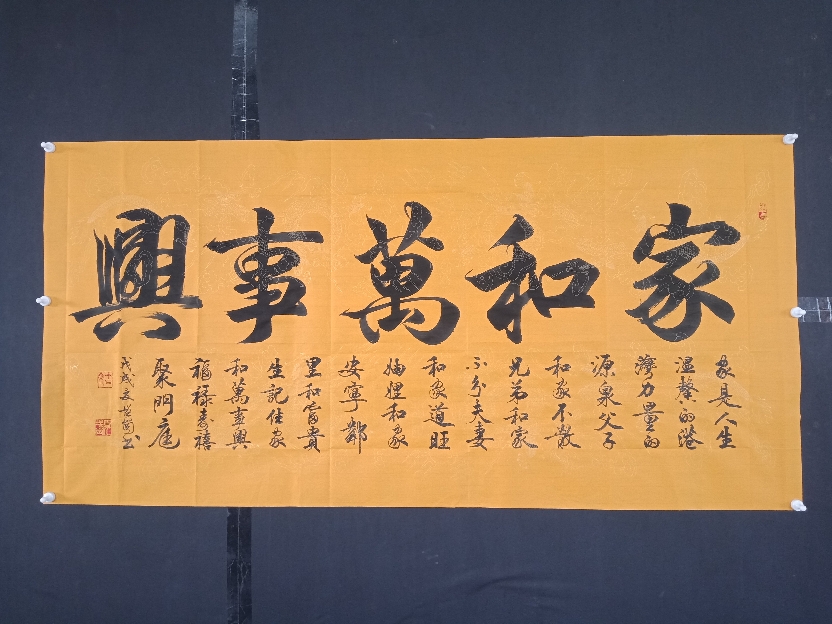 家和萬事興
家是人生
温馨的港
湾力量的
源泉父子
和家不散
兄弟和家
不分夫妻
和家道旺
妯娌和家
安寧鄰
里和富貴
生記住家
和萬事興
福禄寿禧
聚門庭
戊戌
书